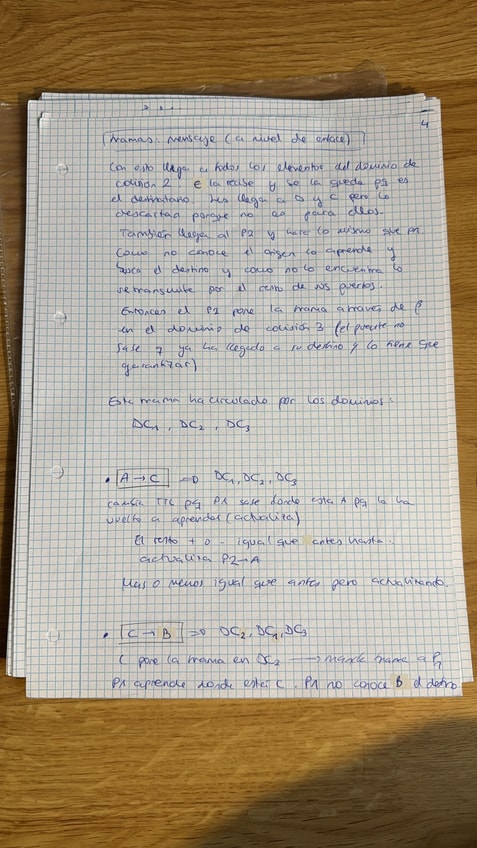 4
tramas: mensaje (a nivel de enlace)
Con esto llega a todos los elementos del dominio de
colisión 2. E la recibe y se la queda pq es
el destinatario. Les llega a D y C pero la
descartan porque no es para ellos.
También llega al P2 y hace lo mismo que P1.
Como no conoce el origen lo aprende y
busca el destino y como no lo encuentra lo
retransmite por el resto de sus puertos.
Entonces el P2 pone la trama a través de β
en el dominio de colisión 3 (el puente no
sabe q ya ha llegado a su destino y lo tiene que
garantizar)
Esta trama ha circulado por los dominios:
DC1, DC2, DC3
• A → C => DC1, DC2, DC3
cambia TTL pq P1 sabe donde esta A pq la ha
vuelto a aprender (actualiza)
El resto + o - igual que antes hasta
actualiza P2 → A
Mas o menos igual que antes pero actualizando.
• C → B => DC2, DC1, DC3
C pone la trama en DC2 → manda trama a P1
P1 aprende donde está C. P1 no conoce B el destino